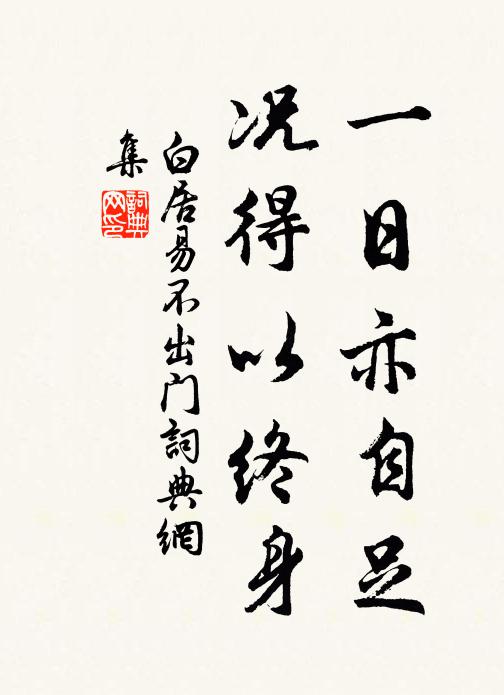 一日亦自足
况得以终身
白居易不出门詞典網
集
詞典
网印